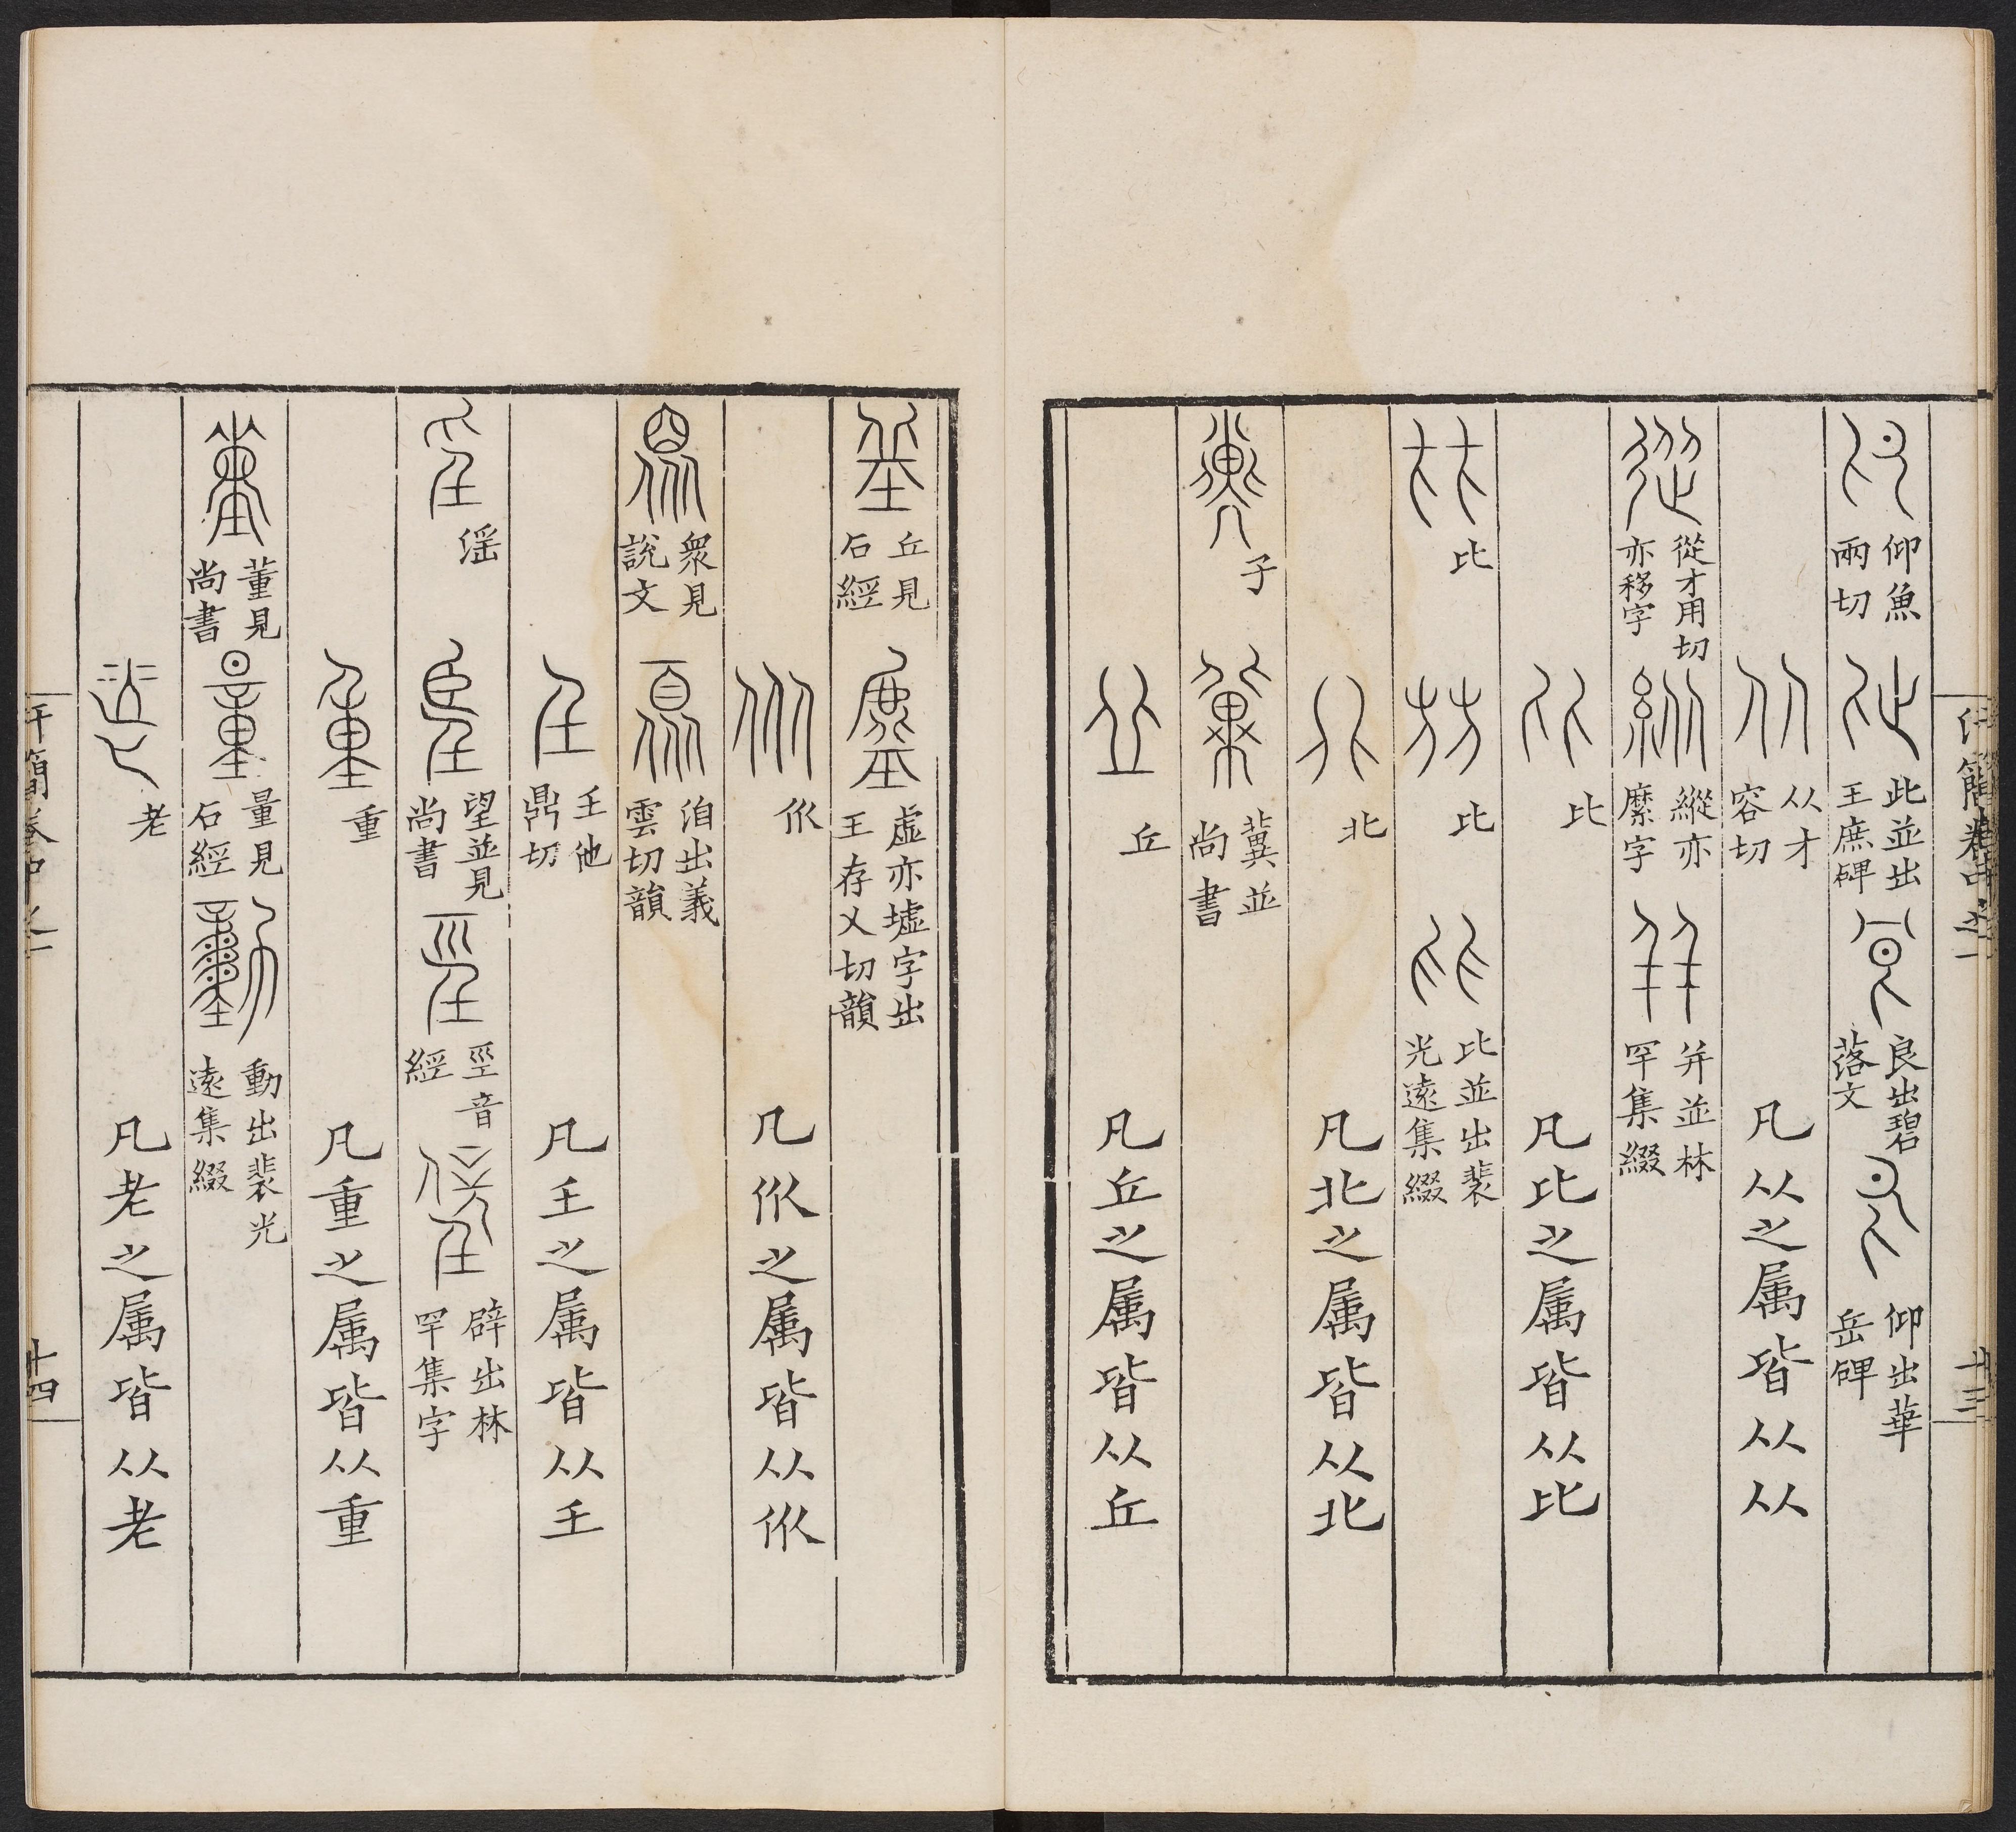 仰魚兩切 此並出王庶碑 良出碧落文 仰出華岳碑
从才容切 凡从之属皆从从
從才用切亦移字 縱亦縻字 并並林罕集綴
比 凡比之属皆从比
比 比 比並出裴光遠集綴
北 凡北之属皆从北
子 冀並尚書
丘 凡丘之属皆从丘
丘見石經 虛亦墟字出王存乂切韻
㐺 凡㐺之属皆从㐺
眾見說文 洎出義雲切韻
𡈼他鼎切 凡𡈼之属皆从𡈼
滛 望並見尚書 巠音經 辟出林罕集字
重 凡重之属皆从重
董見尚書 量見石經 動出裴光遠集綴
老 凡老之属皆从老
汗簡卷中之一 十三
汗簡卷中之一 十四